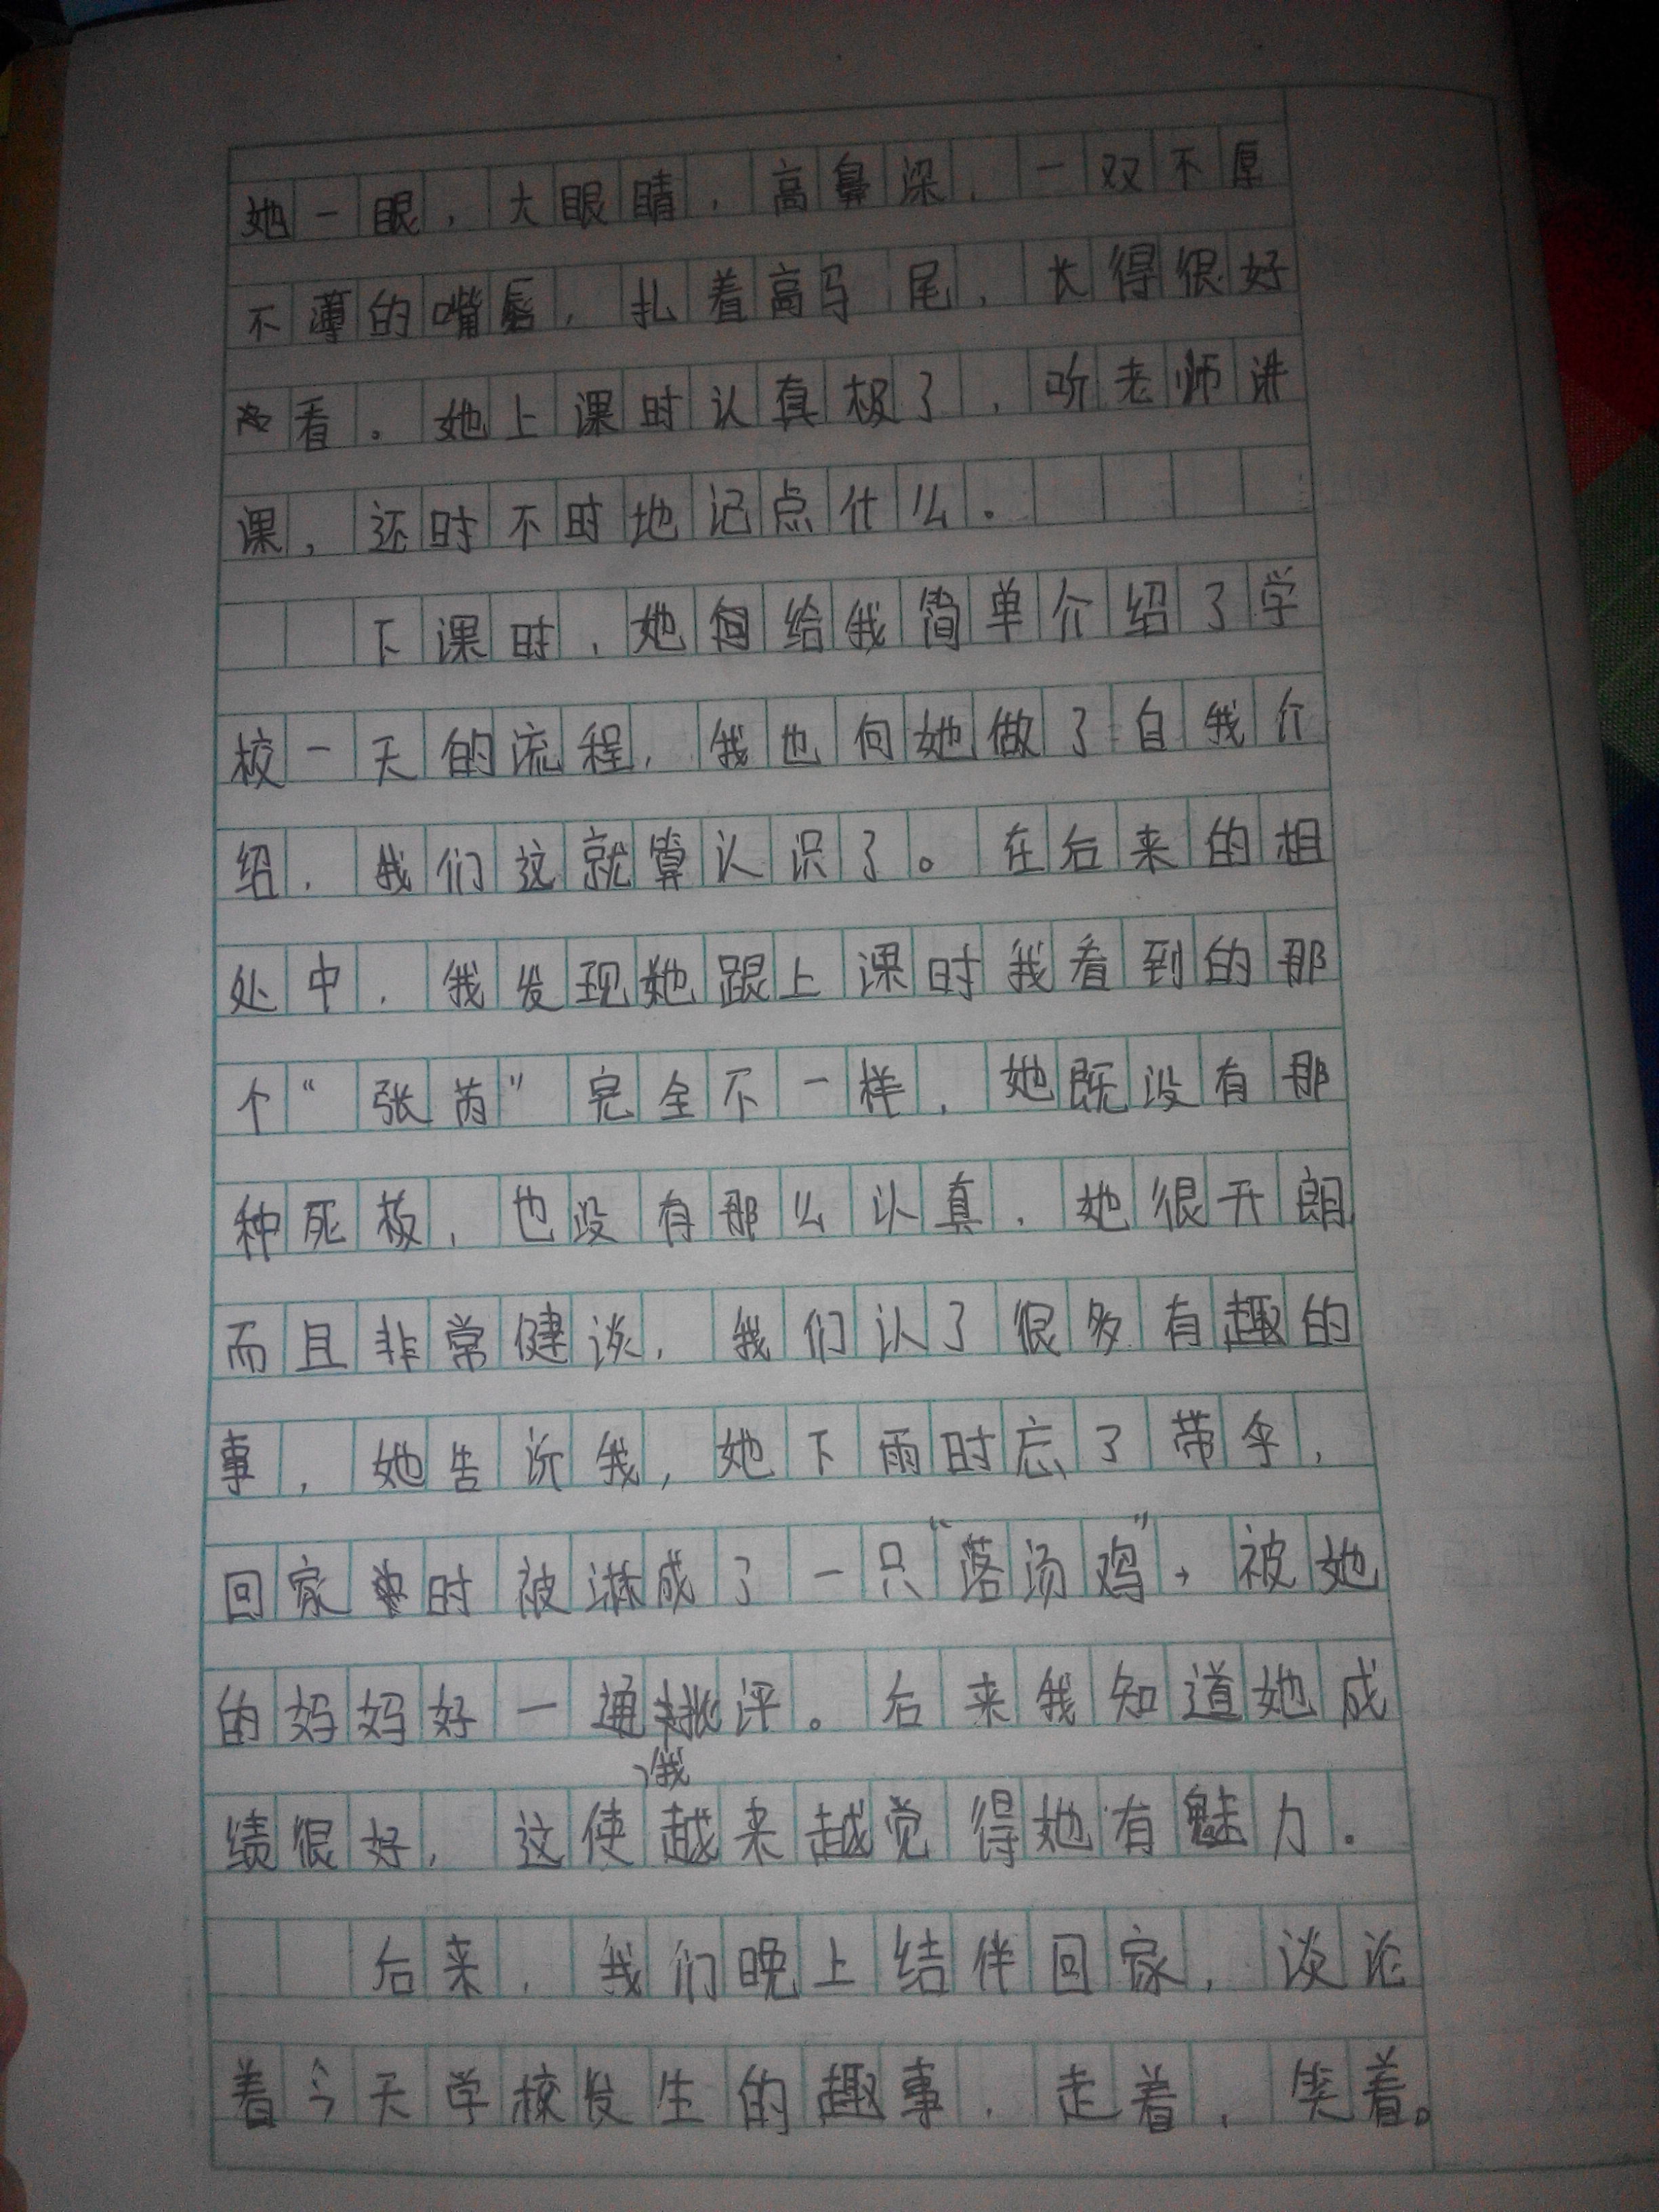 她一眼，大眼睛，高鼻梁，一双不厚
不薄的嘴唇，扎着高马尾，长得很好
看。她上课时认真极了，听老师讲
课，还时不时地记点什么。
下课时，她向给我简单介绍了学
校一天的流程，我也向她做了自我介
绍，我们这就算认识了。在后来的相
处中，我发现她跟上课时我看到的那
个“张芮”完全不一样，她既没有那
种死板，也没有那么认真，她很开朗
而且非常健谈，我们认了很多有趣的
事，她告诉我，她下雨时忘了带伞，
回家时被淋成了一只“落汤鸡”，被她
的妈妈好一通批评。后来我知道她成
绩很好，这使我越来越觉得她有魅力。
后来，我们晚上结伴回家，谈论
着今天学校发生的趣事，走着，笑着。